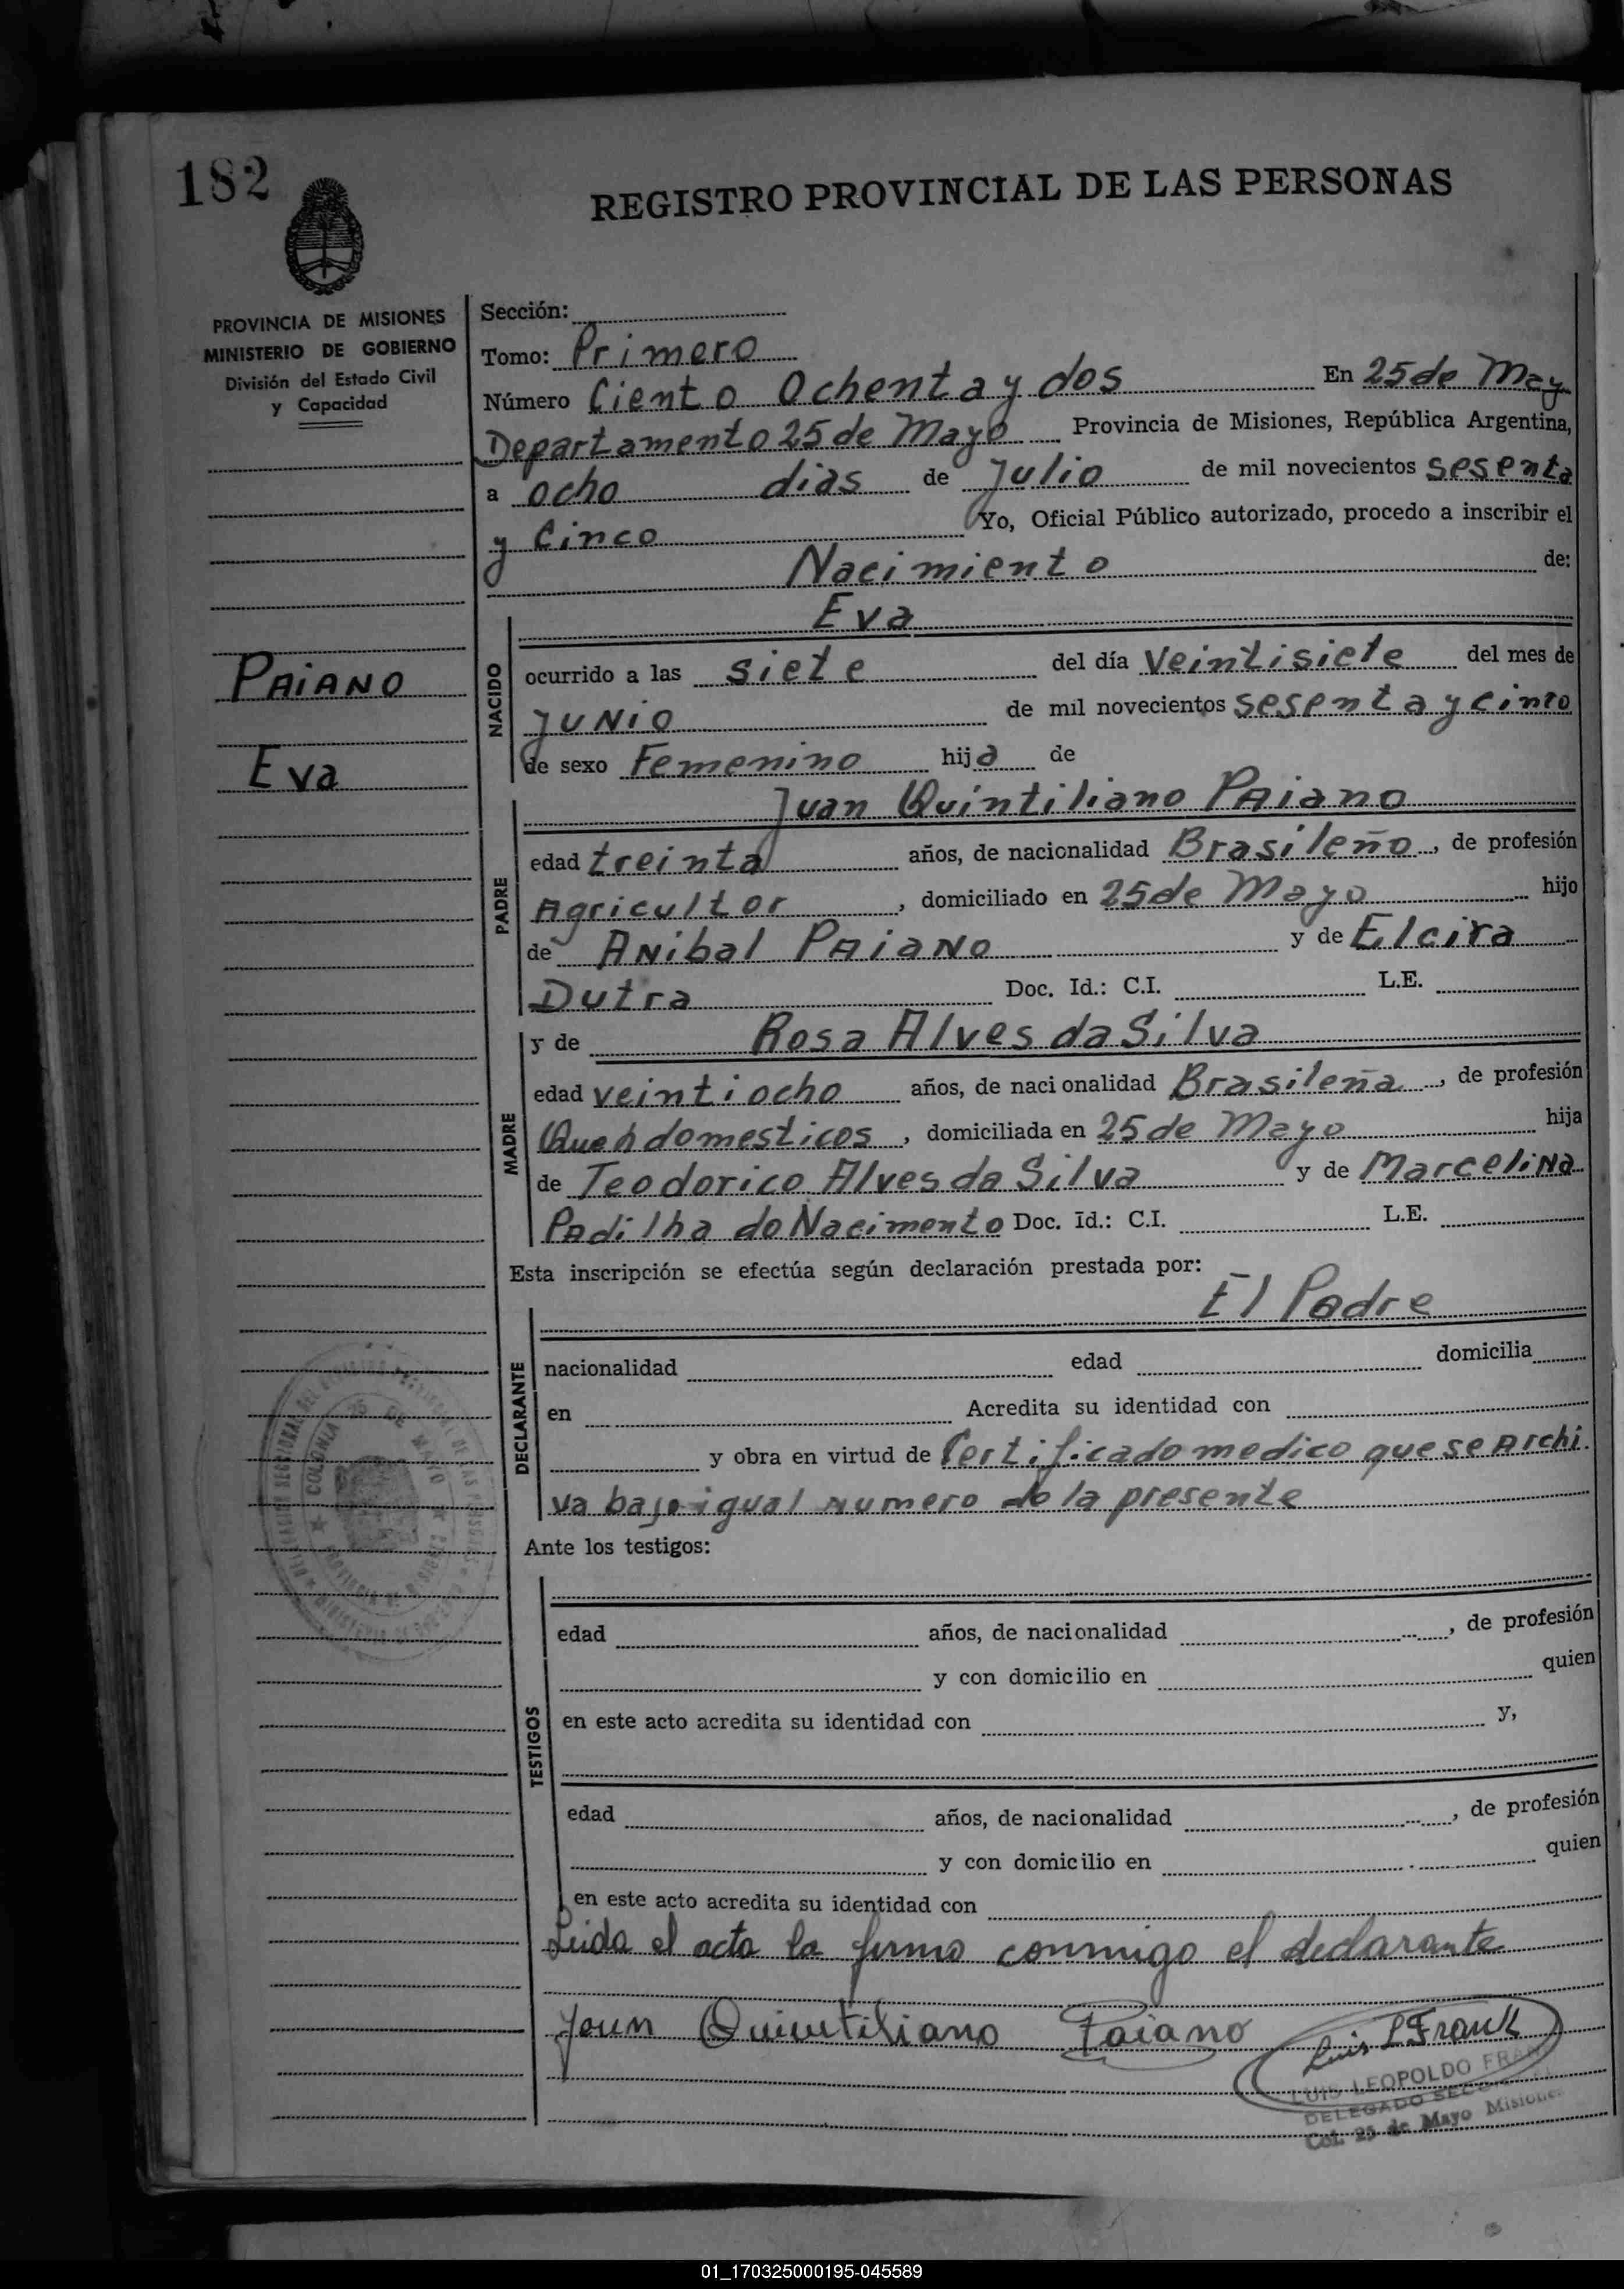 182
REGISTRO PROVINCIAL DE LAS PERSONAS
PROVINCIA DE MISIONES
MINISTERIO DE GOBIERNO
División del Estado Civil
y Capacidad
PAIANO
Eva
Sección:
Tomo: Primero
Número Ciento Ochenta y dos En 25 de May
Departamento 25 de Mayo Provincia de Misiones, República Argentina,
a ocho dias de Julio de mil novecientos sesenta
y Cinco Yo, Oficial Público autorizado, procedo a inscribir el
Nacimiento de:
NACIDO
Eva
ocurrido a las siete del día Veintisiete del mes de
JUNIO de mil novecientos sesenta y cinco
de sexo Femenino hija de
PADRE
Juan Quintiliano PAiano
edad treinta años, de nacionalidad Brasileño, de profesión
Agricultor, domiciliado en 25 de Mayo hijo
de ANibal PAiANo y de Elcira
Dutra Doc. Id.: C.I. L.E.
MADRE
y de Rosa Alves da Silva
edad veintiocho años, de nacionalidad Brasileña, de profesión
domesticos, domiciliada en 25 de Mayo hija
de Teodorico Alves da Silva y de MarceliNa
PAdilha do Nacimento Doc. Id.: C.I. L.E.
Esta inscripción se efectúa según declaración prestada por:
DECLARANTE
El Padre
nacionalidad edad domicilia
en Acredita su identidad con
y obra en virtud de Certificado medico que se Archi
va bajo igual numero de la presente
Ante los testigos:
TESTIGOS
edad años, de nacionalidad , de profesión
y con domicilio en quien
en este acto acredita su identidad con y,
edad años, de nacionalidad , de profesión
y con domicilio en quien
en este acto acredita su identidad con
Leida el acta la firma conmigo el declarante
Joun Quintiliano Paiano
Luis L Frank
LUIS LEOPOLDO FRAN
DELEGADO
Col. 25 de Mayo Misiones
COLONIA 25 DE MAYO
01_170325000195-045589